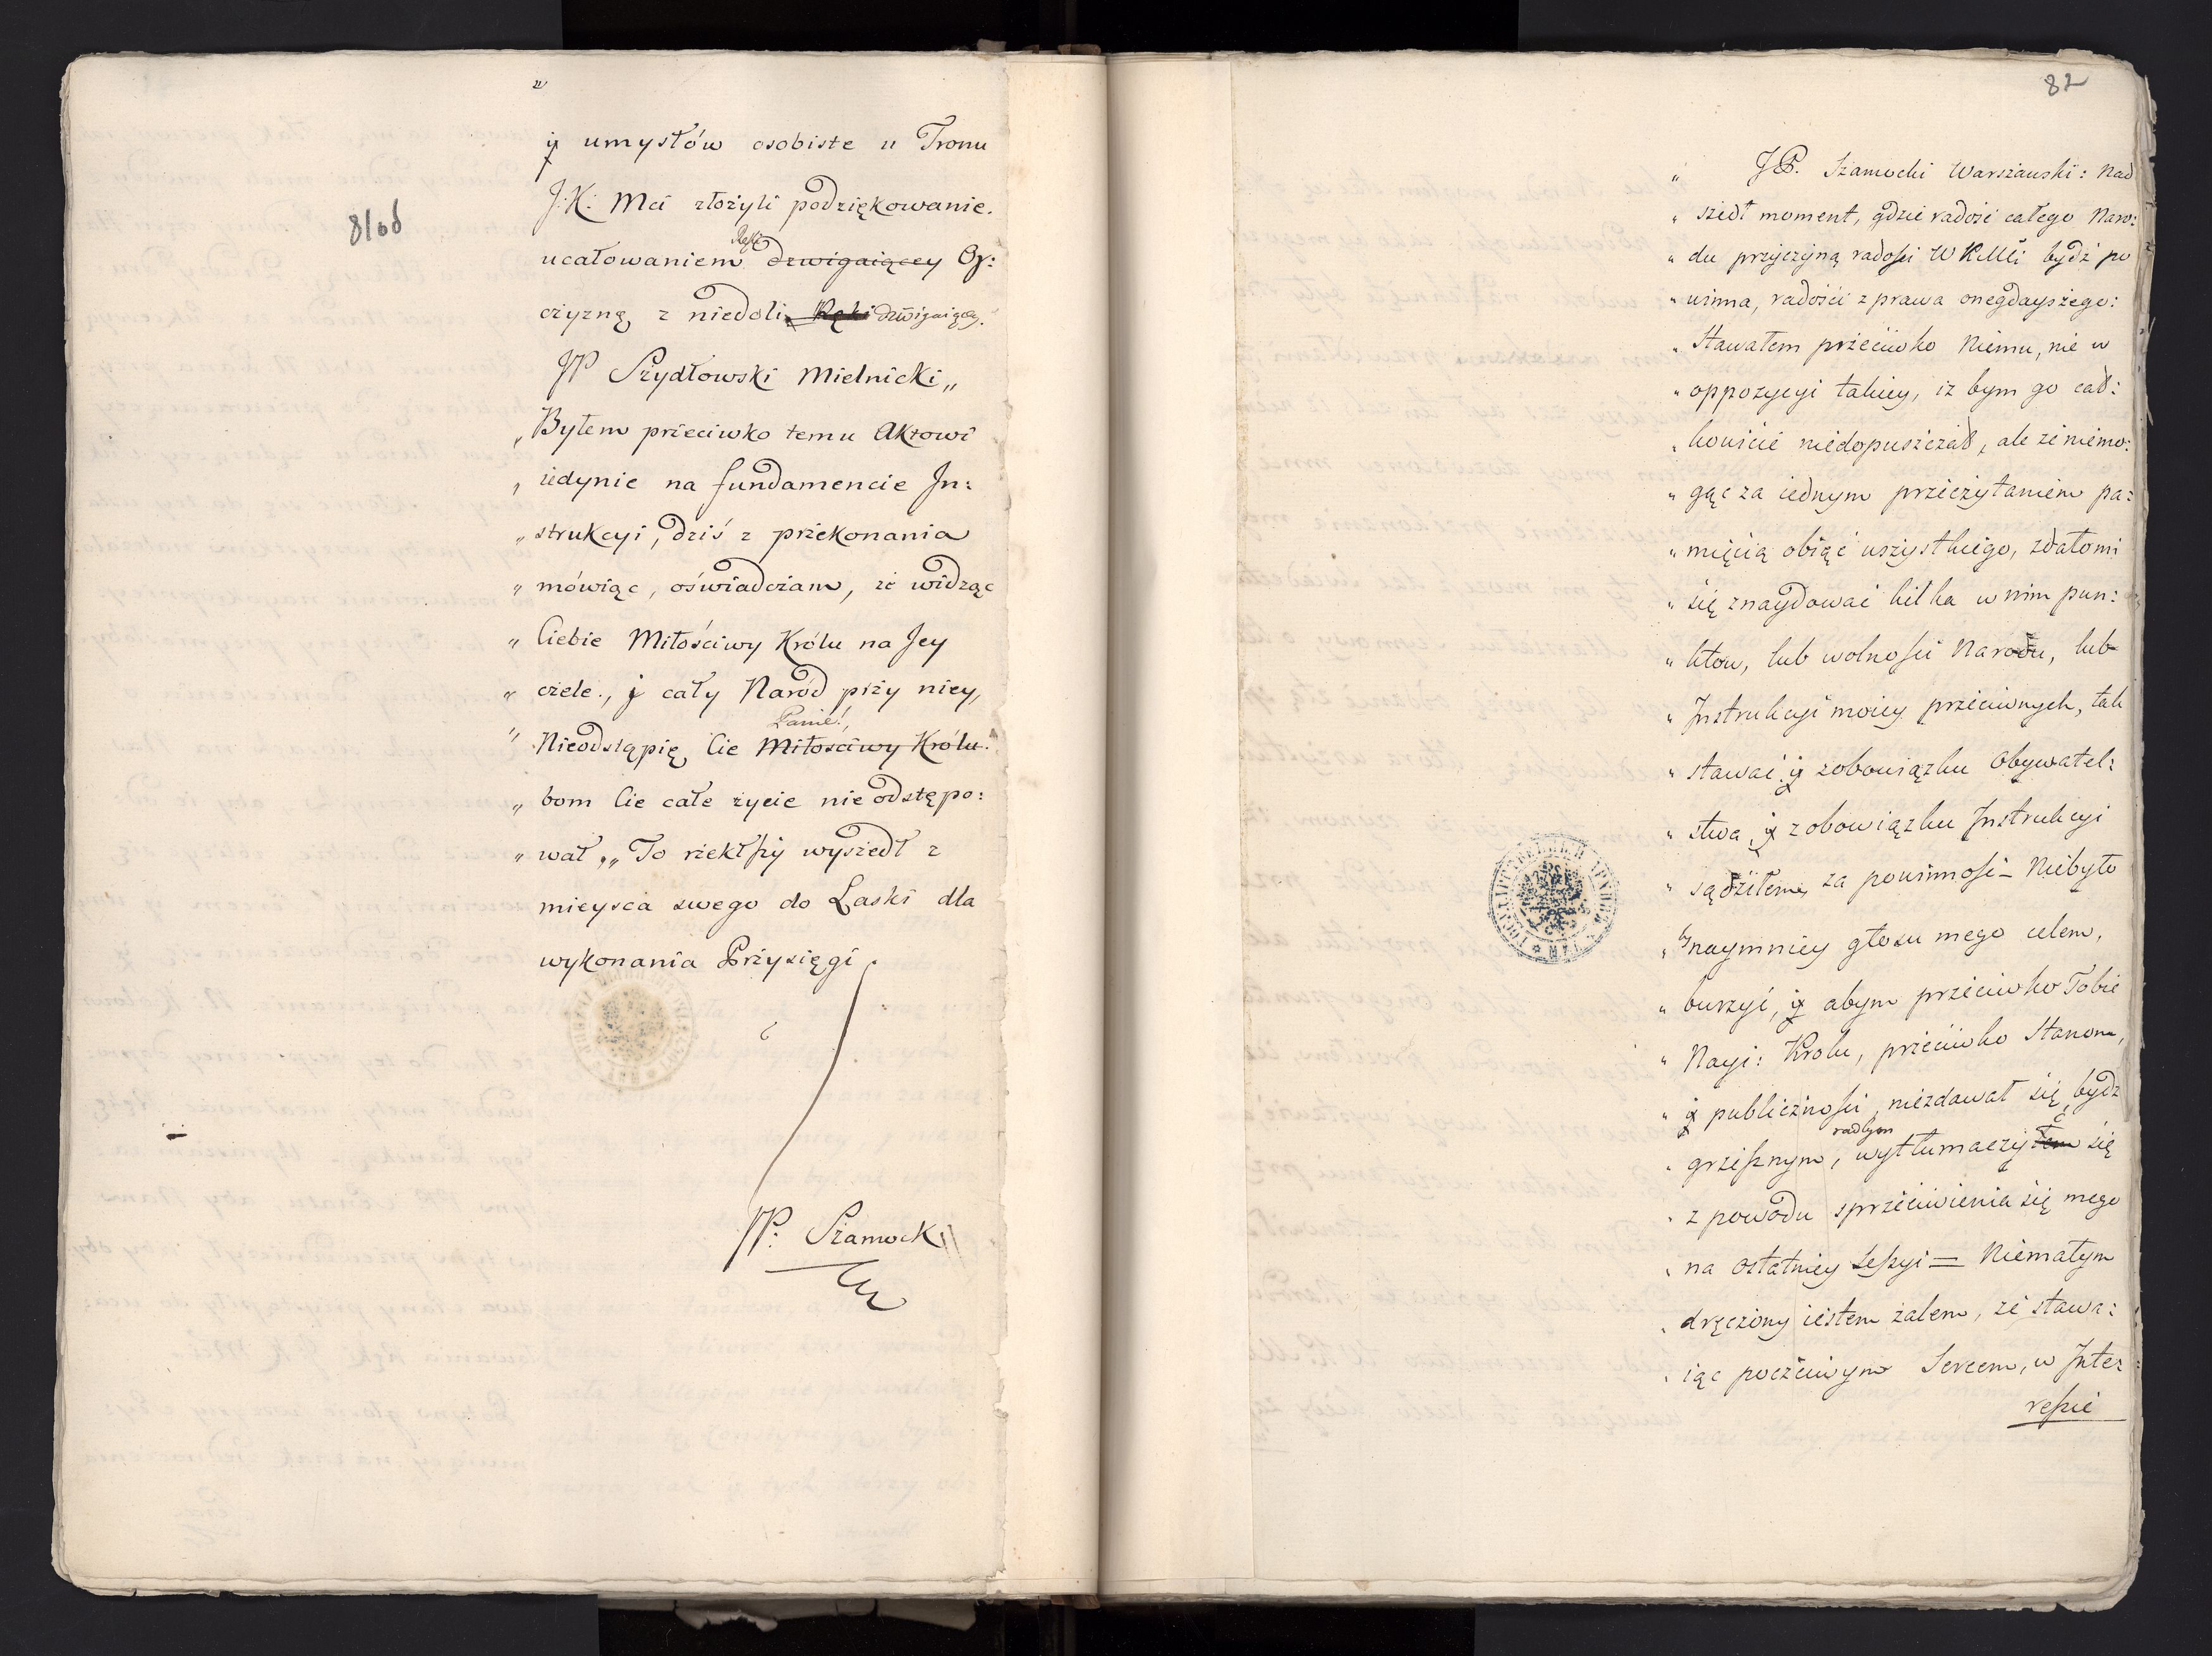 ÿ umysłów osobiste u Tronu
J: K: Mci złożyli podziękowanie.
Ręki
ucałowaniem dzwigaiącey Oy:
czyznę z niedoli Ręki dzwigaiącey.
JP Szydłowski Mielnicki „
„ Byłem przeciwko temu Aktowi
„ iedynie na fundamencie In:
„ strukcyi, dziś z przekonania
„ mówiąc, oświadczam, że widząc
„ Ciebie Miłościwy Królu na Jey
„ czele, j cały Naród przy niey,
Panie!
„ Nieodstąpię Cie Miłościwy Królu.
„ bom Cie całe życie nieodstępo:
„ wał „ To rzekłszy wyszedł z
mieysca swego do Laski dla
wykonania Przysięgi.
JP: Szamocki
82
„ JP. Szamocki Warszawski: Nad
„ szedł moment, gdzie radość całego Naro:
„ du przyczyną radości WKMći bydź po
„ winna, radości z prawa onegdayszego:
„ Stawałem przeciwko Niemu, nie w
„ oppozycyi takiey, iż bym go cał:
„ kowicie niedopuszczał, ale że niemo:
„ gąc za iednym przeczytaniem pa:
„ mięcią obiąć wszystkiego, zdałomi
„ się znaydować kilka w nim pun:
„ któw, lub wolności Narodu, lub
„ Instrukcyi moiey przeciwnych, tak
„ stawać ÿ zobowiązku Obywatel:
„ stwa, ÿ zobowiązku Instrukcyi
„ sądziłem za powinność – Niebyło
„ bynaymniey głosu mego celem,
„ burzyć, ÿ abym przeciwko Tobie
„ Nayj: Krolu, przeciwko Stanom,
„ ÿ publiczności niezdawał się bydz
radbym
„ grzesznym, wytłumaczyłem się
„ z powodu sprzeciwienia się mego
„ na ostatniey Sessyi = Niemałym
„ dręczony iestem żalem, że stawa:
„ iąc poczciwym Sercem, w Inter
ressie